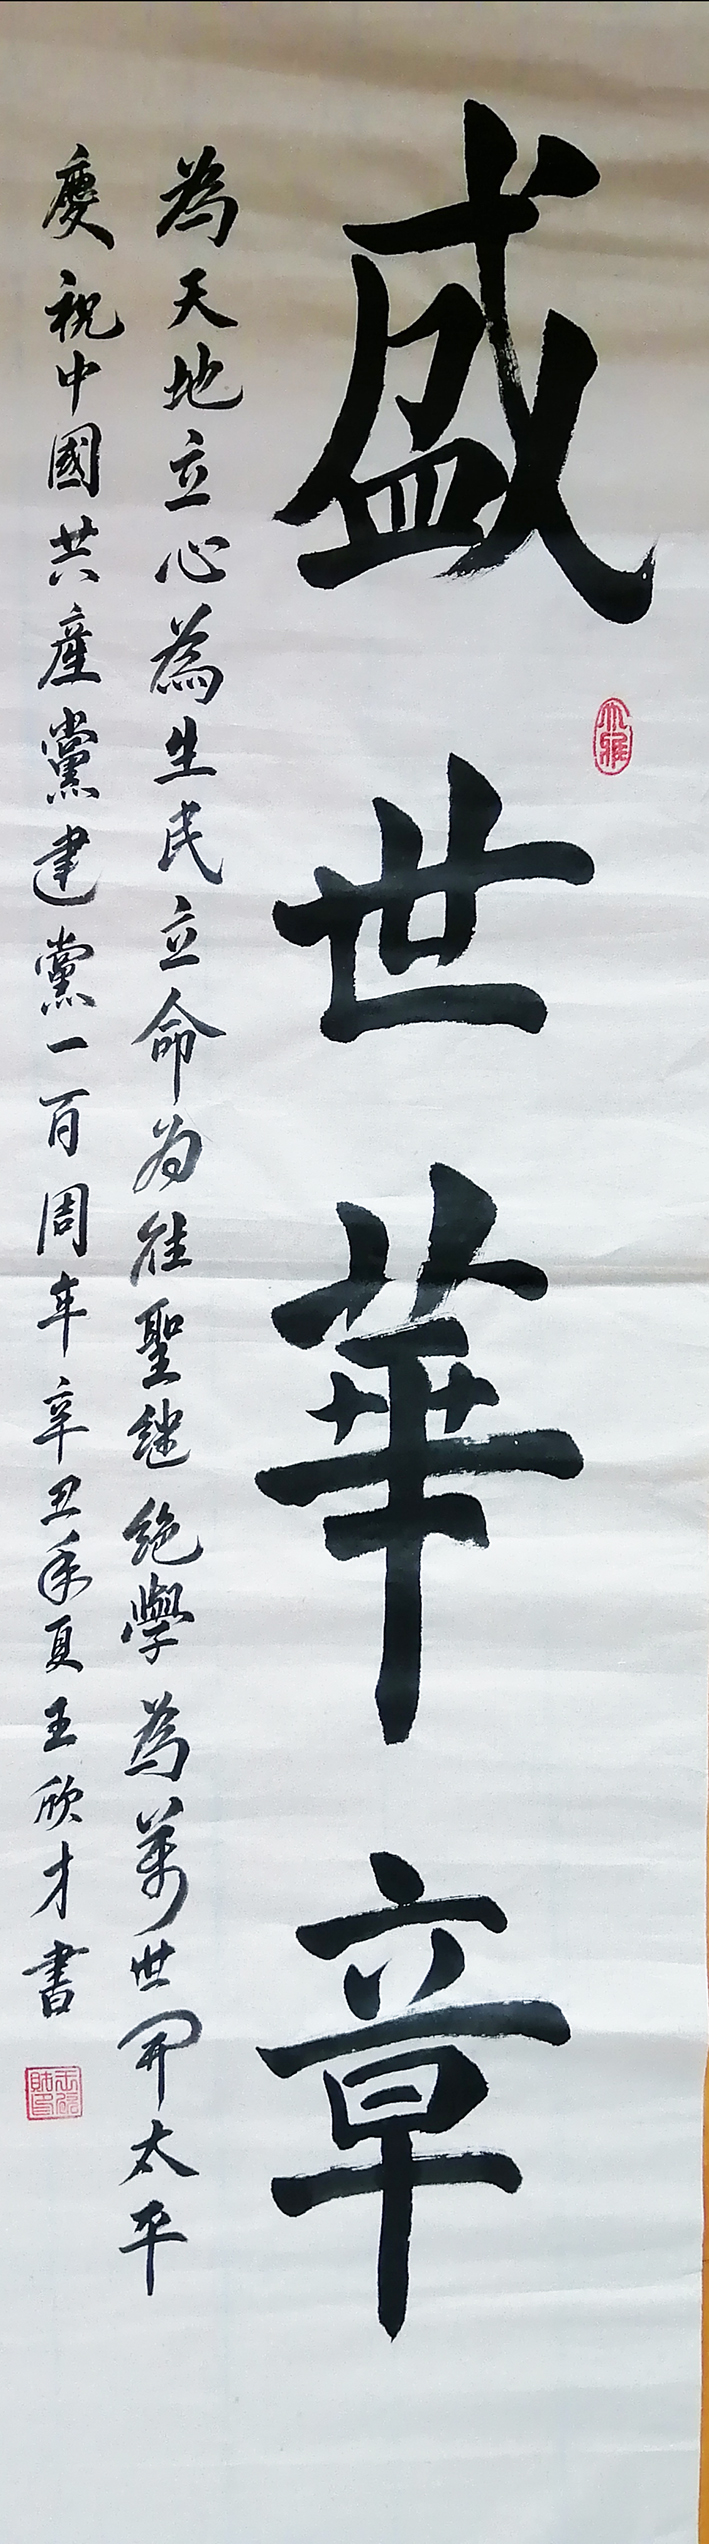 盛世華章
為天地立心為生民立命为往聖继絶學為萬世开太平
慶祝中國共産黨建黨一百周年辛丑年夏王欣才書